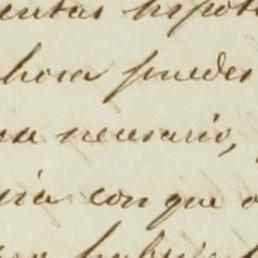 entas hipot
hora puedes
sea necesario,
ria con que o